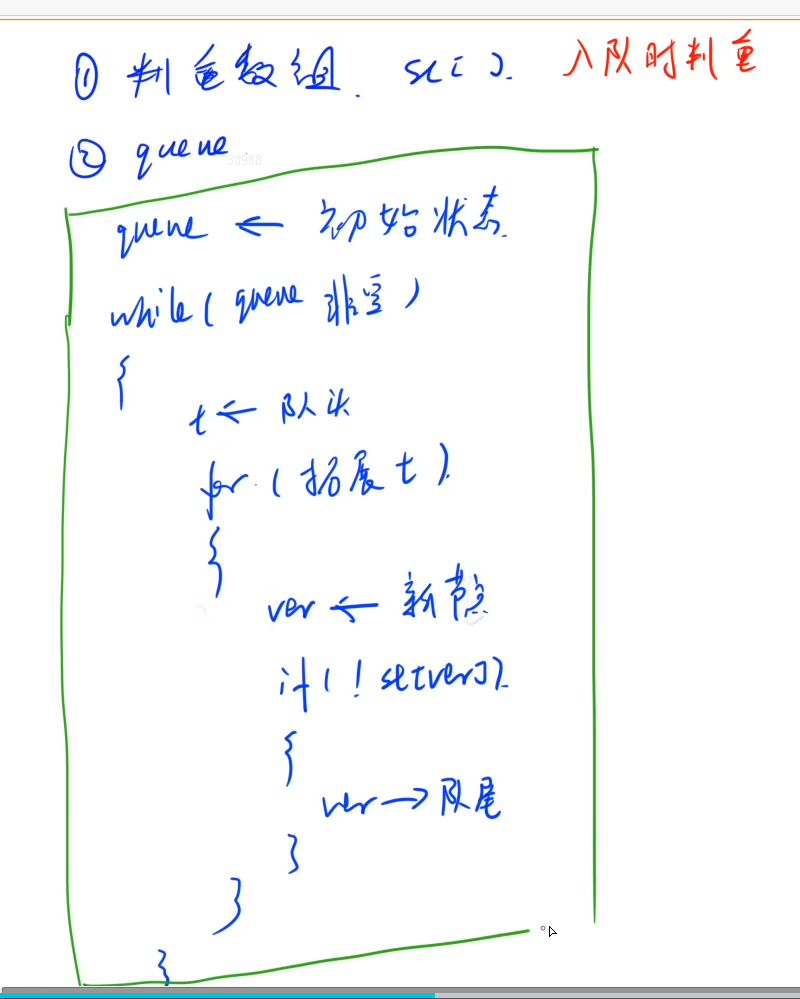 ① 判重数组. st[ ]. 入队时判重
② queue
38988
queue ← 初始状态.
while( queue 非空 )
{
t ← 队头
for ( 拓展 t )
{
ver ← 新节点
if( ! st[ver] )
{
ver → 队尾
}
}
}